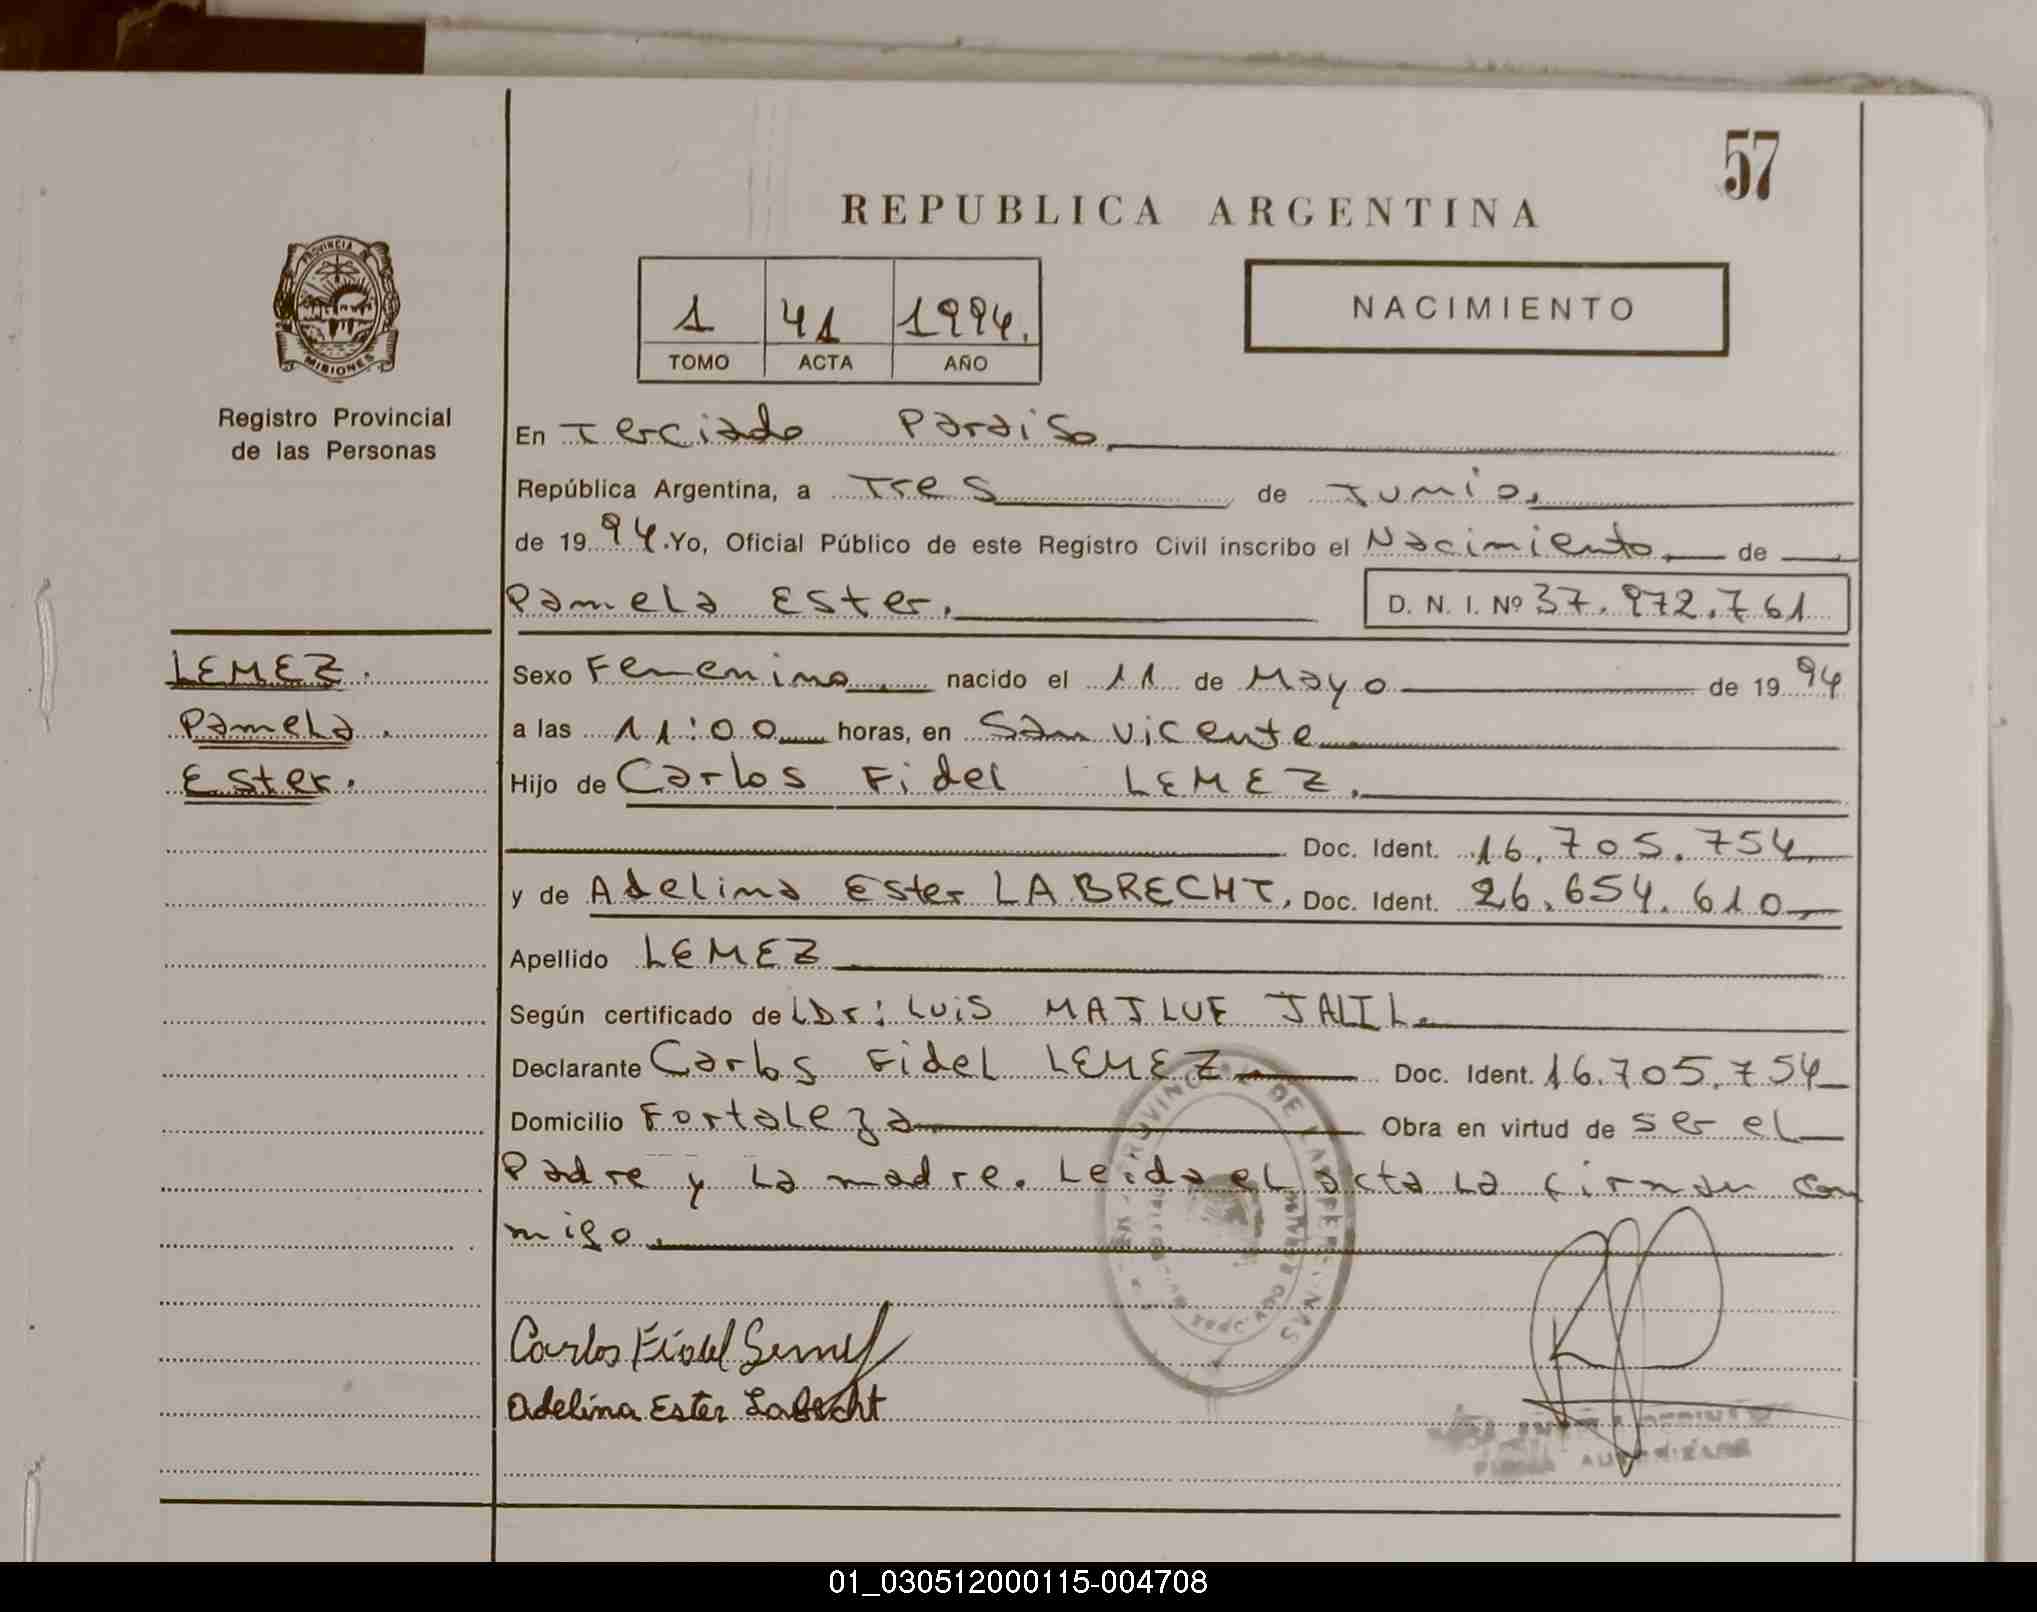 57
REPUBLICA ARGENTINA
PROVINCIA DE
MISIONES
Registro Provincial
de las Personas
1 41 1994.
TOMO ACTA AÑO
NACIMIENTO
En Terciado Paraiso,
República Argentina, a Tres de Junio,
de 1994. Yo, Oficial Público de este Registro Civil inscribo el Nacimiento de
Pamela Ester. D. N. I. Nº 37.972.761
LEMEZ.
Pamela.
Ester.
Sexo Femenino. nacido el 11 de Mayo de 1994
a las 11:00 horas, en San Vicente
Hijo de Carlos Fidel LEMEZ.
Doc. Ident. 16.705.754
y de Adelina Ester LABRECHT, Doc. Ident. 26.654.610
Apellido LEMEZ
Según certificado de Dr: Luis JALIL.
Declarante Carlos Fidel LEMEZ Doc. Ident. 16.705.754
Domicilio Fortaleza Obra en virtud de ser el
Padre y la madre. Leida el acta la firman con
migo.
PROVINCIA DE LAS PERSONAS
Carlos Fidel
Adelina Ester Labrecht
FIRMA AUTORIZADA
01_030512000115-004708